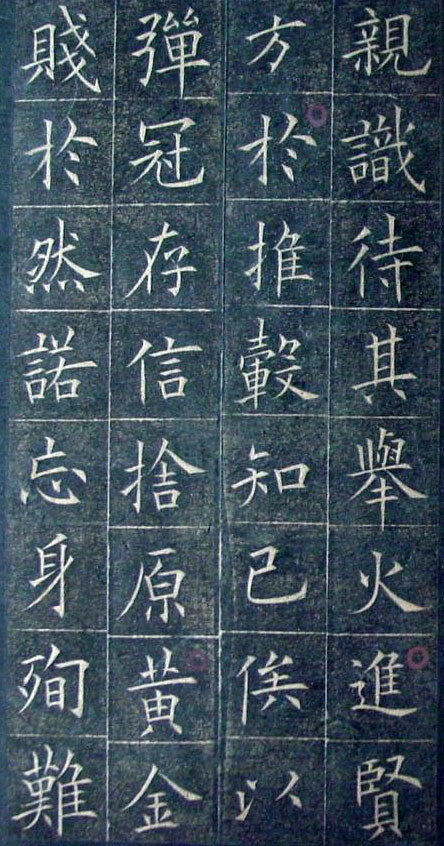 親識待其舉火進賢
方於推轂知己俟以
彈冠存信捨原黄金
賤於然諾忘身殉難